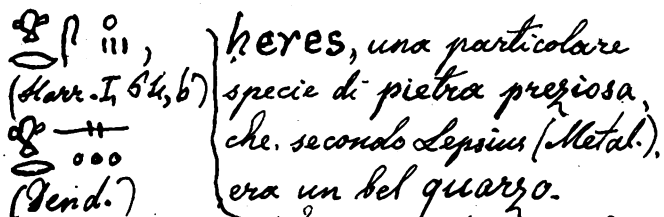 𓁷𓂋𓋴𓈒𓏥,
(Harr. I,
𓁷𓂋𓊃𓈓
(Dend.)
ḥeres, una particolare
specie di pietra preziosa,
che, secondo Lepsius (Metal.),
era un bel quarzo.